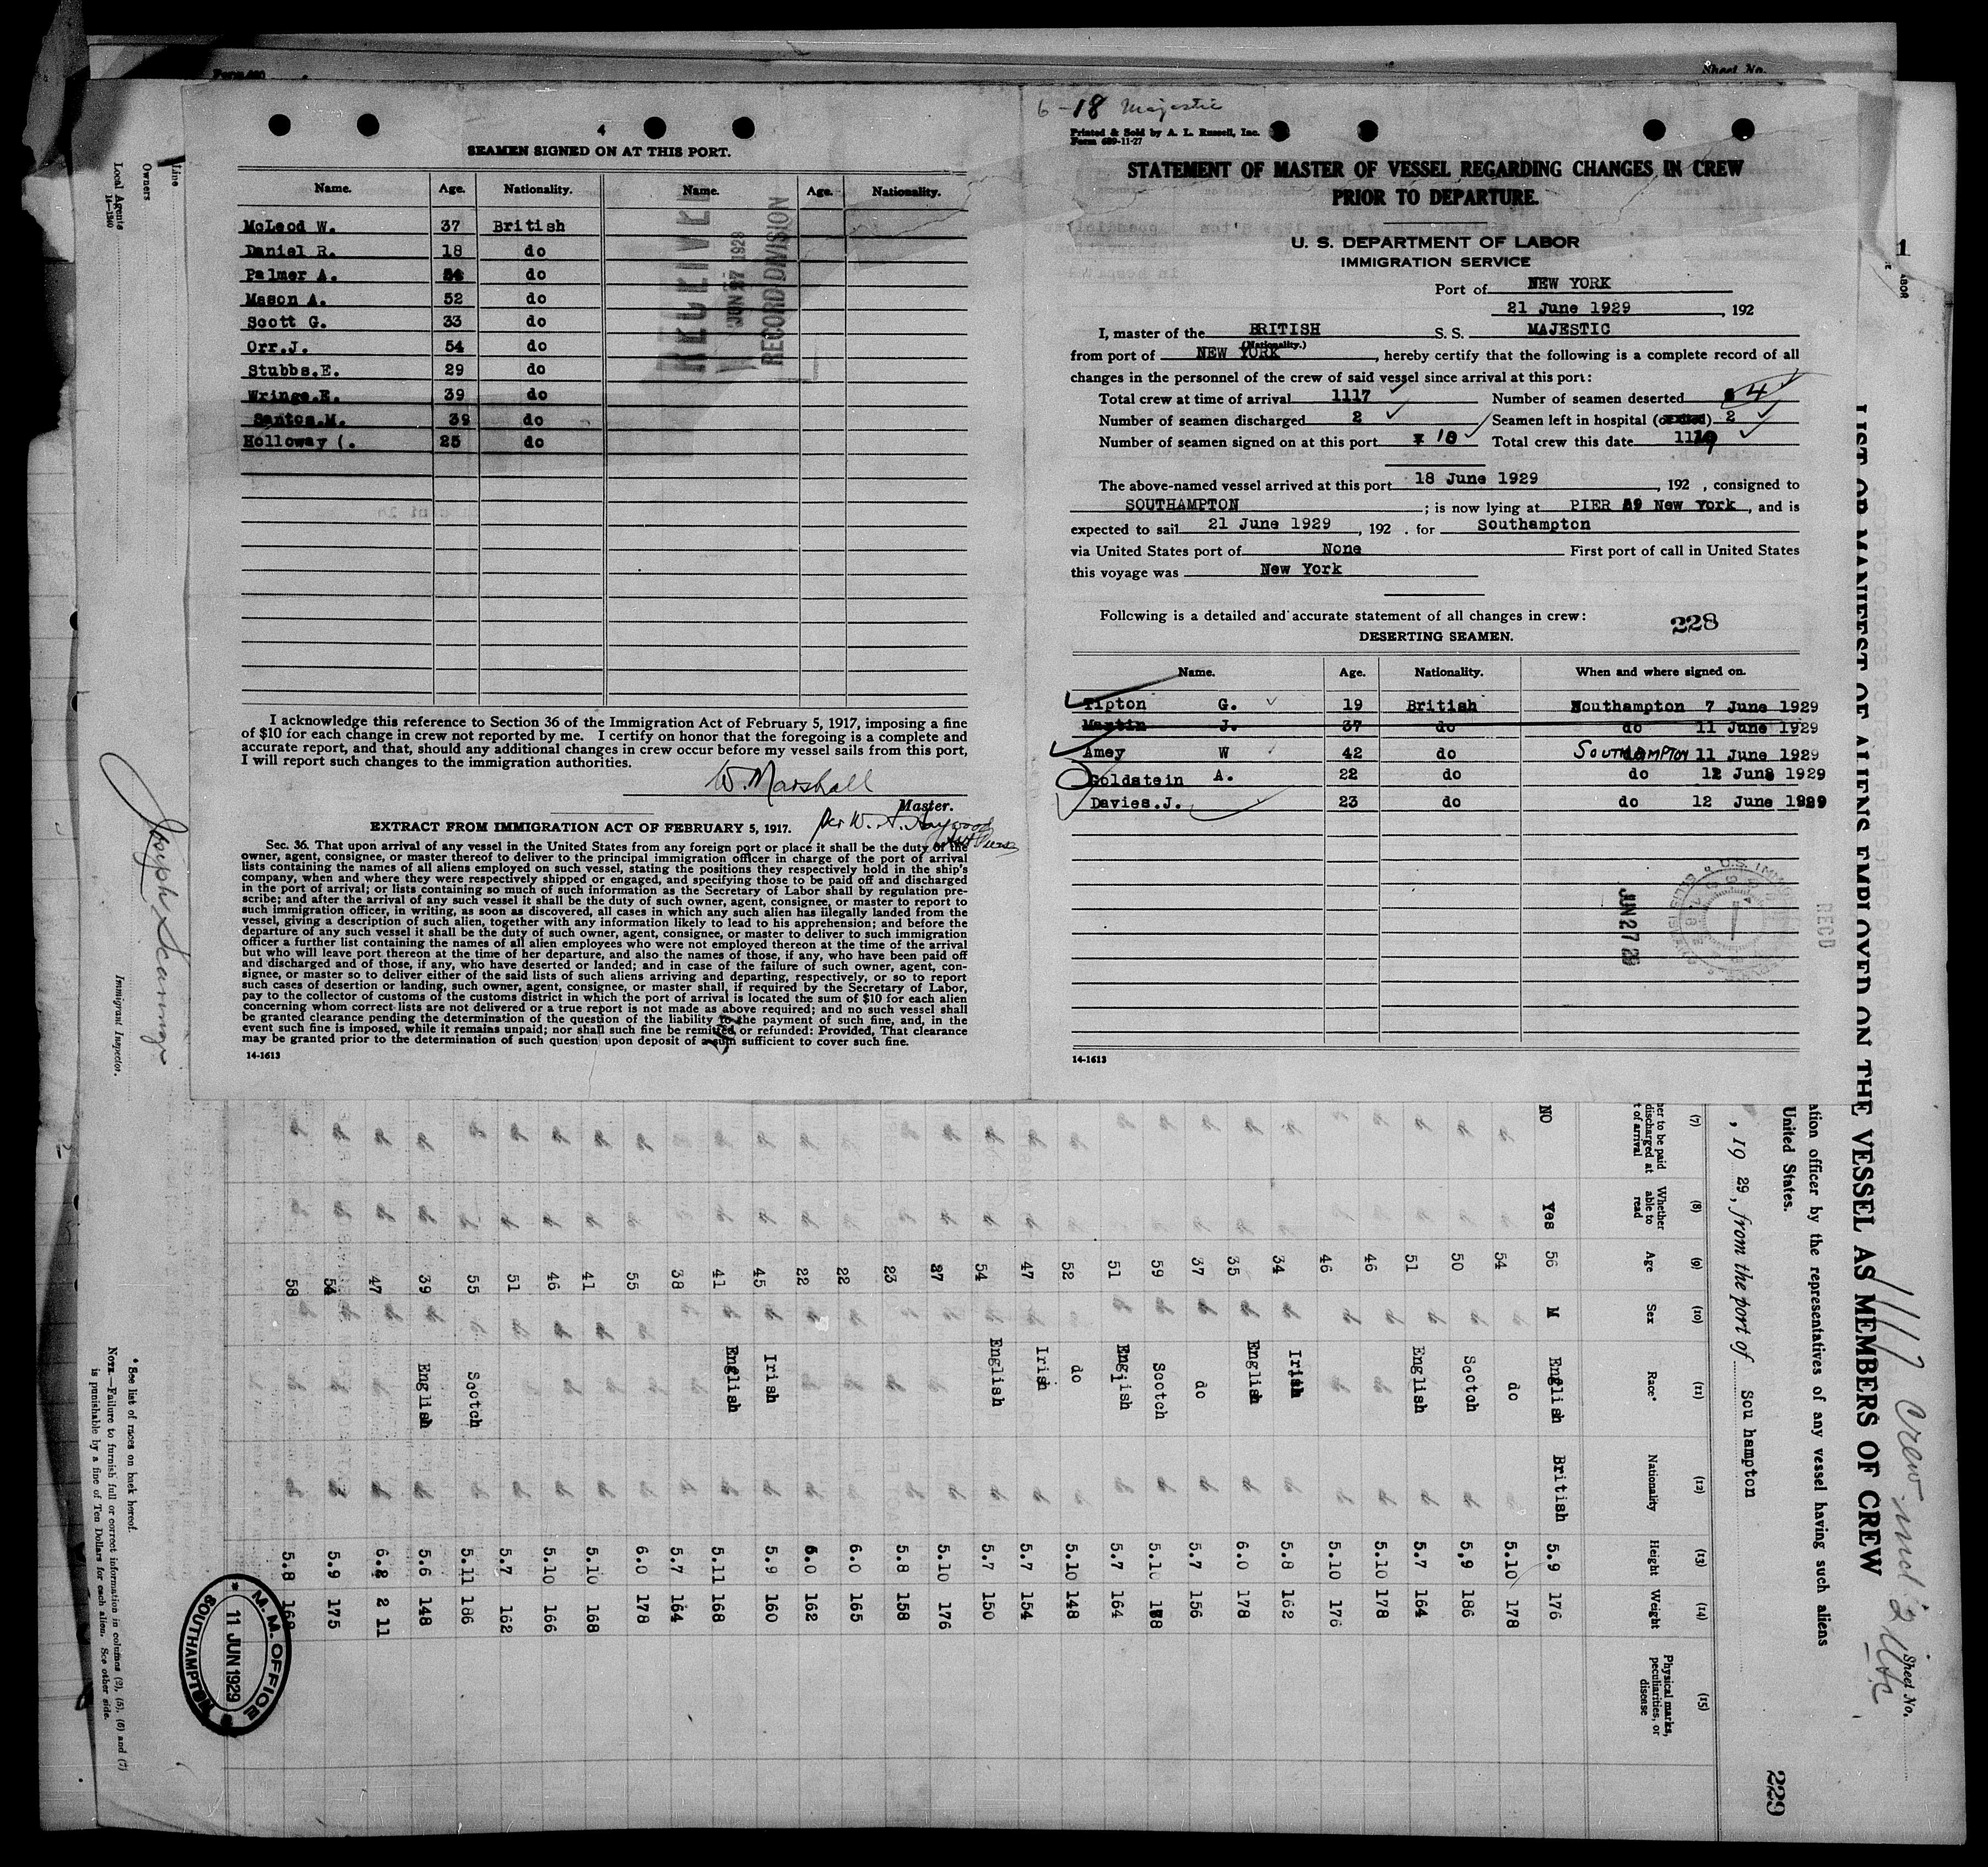 Form 680
Sheet No.
4
SEAMEN SIGNED ON AT THIS PORT.
Name. Age. Nationality. Name. Age. Nationality.
McLeod W. 37 British
Daniel R. 18 do
Palmer A. do
Mason A. 52 do
Scott G. 33 do
Orr.J. 54 do
Stubbs.E. 29 do
Wringe.E. 39 do
Santos.M. 39 do
Holloway (. 25 do
RECEIVED
JUN 27 1929
RECORD DIVISION
I acknowledge this reference to Section 36 of the Immigration Act of February 5, 1917, imposing a fine
of $10 for each change in crew not reported by me. I certify on honor that the foregoing is a complete and
accurate report, and that, should any additional changes in crew occur before my vessel sails from this port,
I will report such changes to the immigration authorities.
W. Marshall
Master.
per W. A. Haywood
EXTRACT FROM IMMIGRATION ACT OF FEBRUARY 5, 1917.
Sec. 36. That upon arrival of any vessel in the United States from any foreign port or place it shall be the duty of the
owner, agent, consignee, or master thereof to deliver to the principal immigration officer in charge of the port of arrival
lists containing the names of all aliens employed on such vessel, stating the positions they respectively hold in the ship's
company, when and where they were respectively shipped or engaged, and specifying those to be paid off and discharged
in the port of arrival; or lists containing so much of such information as the Secretary of Labor shall by regulation pre-
scribe; and after the arrival of any such vessel it shall be the duty of such owner, agent, consignee, or master to report to
such immigration officer, in writing, as soon as discovered, all cases in which any such alien has illegally landed from the
vessel, giving a description of such alien, together with any information likely to lead to his apprehension; and before the
departure of any such vessel it shall be the duty of such owner, agent, consignee, or master to deliver to such immigration
officer a further list containing the names of all alien employees who were not employed thereon at the time of the arrival
but who will leave port thereon at the time of her departure, and also the names of those, if any, who have been paid off
and discharged and of those, if any, who have deserted or landed; and in case of the failure of such owner, agent, con-
signee, or master so to deliver either of the said lists of such aliens arriving and departing, respectively, or so to report
such cases of desertion or landing, such owner, agent, consignee, or master shall, if required by the Secretary of Labor,
pay to the collector of customs of the customs district in which the port of arrival is located the sum of $10 for each alien
concerning whom correct lists are not delivered or a true report is not made as above required; and no such vessel shall
be granted clearance pending the determination of the question of the liability to the payment of such fine, and, in the
event such fine is imposed, while it remains unpaid; nor shall such fine be remitted or refunded: Provided, That clearance
may be granted prior to the determination of such question upon deposit of a sum sufficient to cover such fine.
14-1613
6-18 Majestic
Printed & Sold by A. L. Russell, Inc.
Form 689-11-27
STATEMENT OF MASTER OF VESSEL REGARDING CHANGES IN CREW
PRIOR TO DEPARTURE.
U. S. DEPARTMENT OF LABOR
IMMIGRATION SERVICE
Port of NEW YORK
21 June 1929 , 192
I, master of the BRITISH S. S. MAJESTIC
(Nationality.)
from port of NEW YORK , hereby certify that the following is a complete record of all
changes in the personnel of the crew of said vessel since arrival at this port:
Total crew at time of arrival 1117 Number of seamen deserted 4
Number of seamen discharged 2 Seamen left in hospital (or died) 2
Number of seamen signed on at this port 10 Total crew this date 1119
The above-named vessel arrived at this port 18 June 1929 , 192 , consigned to
SOUTHAMPTON ; is now lying at PIER 59 New York , and is
expected to sail 21 June 1929 , 192 . for Southampton
via United States port of None First port of call in United States
this voyage was New York
Following is a detailed and accurate statement of all changes in crew:
228
DESERTING SEAMEN.
Name. Age. Nationality. When and where signed on.
Tipton G. 19 British Southampton 7 June 1929
Martin J. 37 do do 11 June 1929
Amey W 42 do SOUTHAMPTON 11 June 1929
Goldstein A. 22 do do 12 June 1929
Davies.J. 23 do do 12 June 1929
JUN 27 29
RECD
14-1613
Line
Owners
Local Agents
14-1240
Joseph
Immigrant Inspector.
1
LIST OR MANIFEST OF ALIENS EMPLOYED ON THE VESSEL AS MEMBERS OF CREW
1117 crew incl 2
Sheet No.
ation officer by the representatives of any vessel having such aliens
United States.
, 19 29, from the port of Sou hampton
229
(7) (8) (9) (10) (11) (12) (13) (14) (15)
her to be paid discharged at t of arrival
Whether able to read
Age
Sex
Race*
Nationality
Height
Weight
Physical marks, peculiarities, or disease
NO Yes 56 M English British 5.9 176
54 do 5.10 178
50 Scotch 5,9 186
51 English 5.7 164
46 5.10 178
46 5.10 176
34 Irish 5.8 162
35 English 6.0 178
37 do 5.7 156
59 Scotch 5.10
51 English 5.7 164
52 do 5.10 148
47 Irish 5.7 154
54 English 5.7 150
27 5.10 176
23 5.8 158
22 6.0 165
22 6.0 162
45 Irish 5.9 160
41 English 5.11 168
38 5.7 164
55 6.0 178
41 5.10 168
46 5.10 166
51 5.7 162
55 Scotch 5.11 186
39 English 5.6 148
47 6.2 2 11
5.9 175
58 5.8
* See list of races on back hereof.
NOTE.—Failure to furnish full or correct information in columns (2), (5), (6) and (7)
is punishable by a fine of Ten Dollars for each alien. See other side.
M.M. OFFICE
11 JUN 1929
SOUTHAMPTON